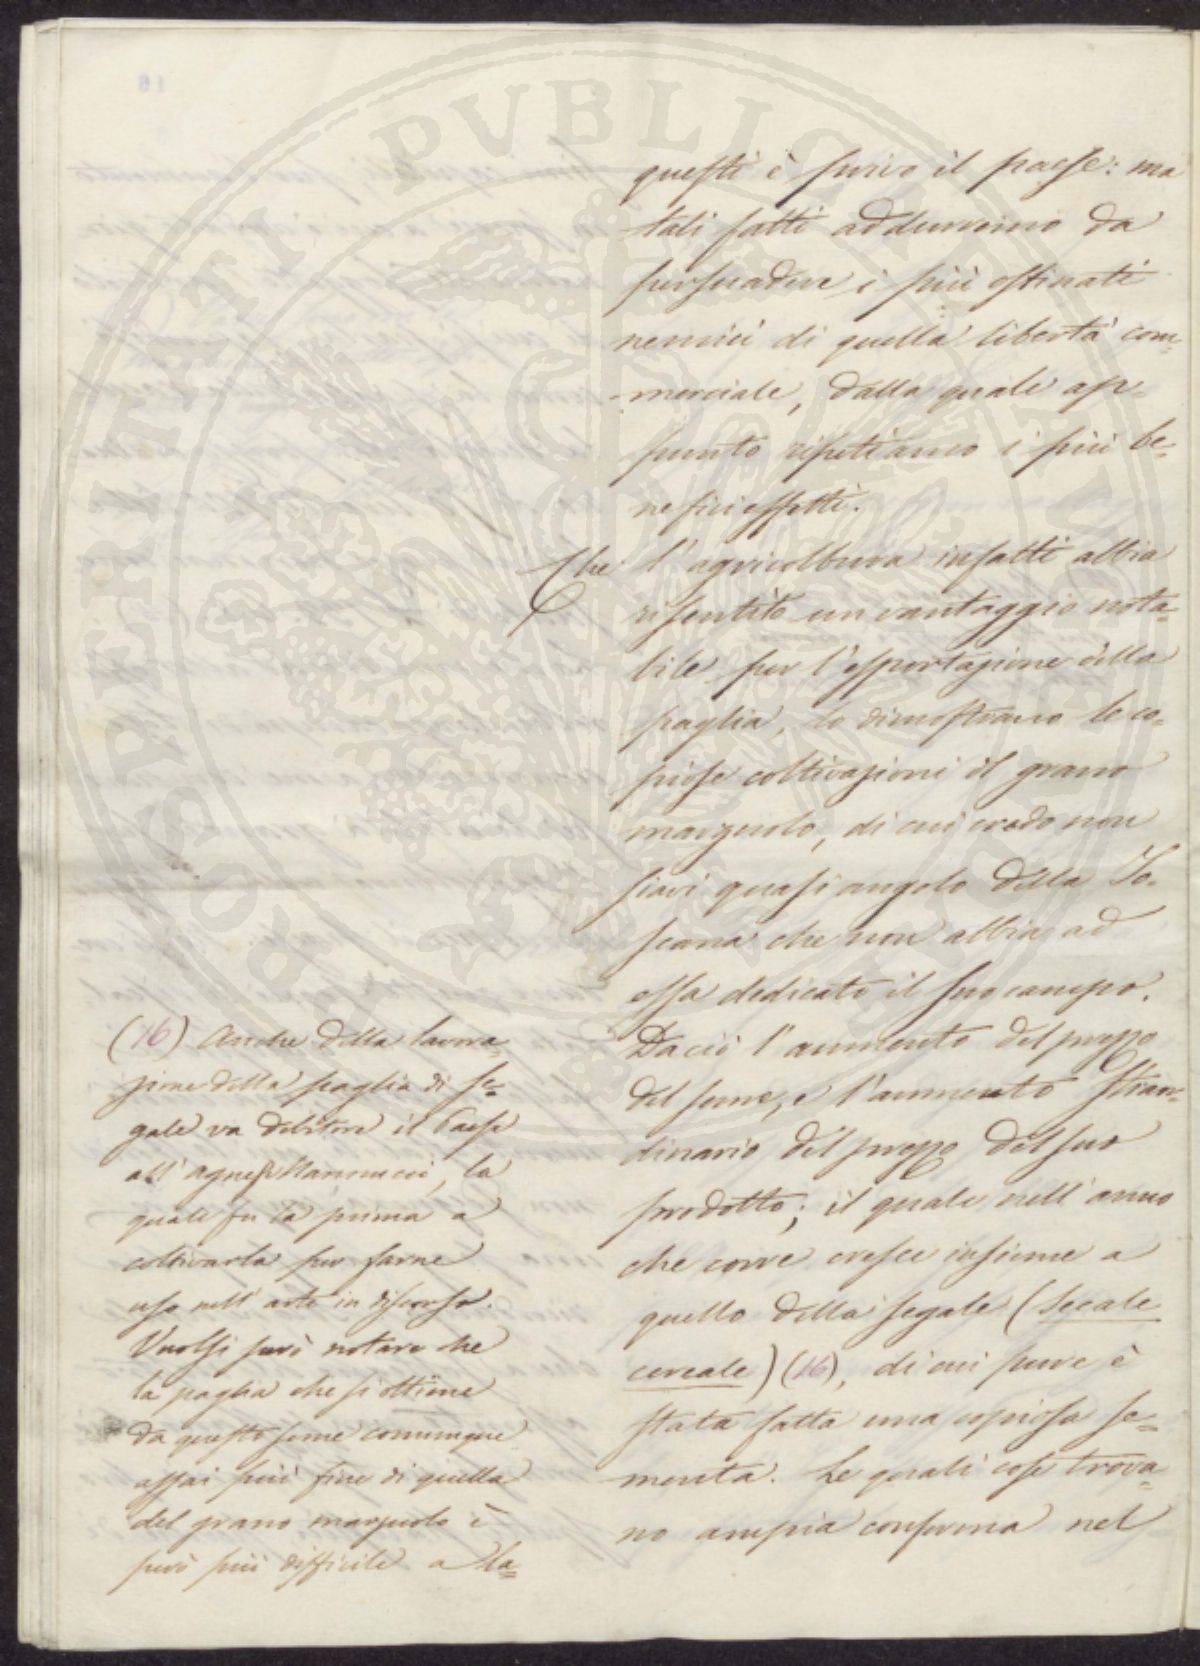 questi è privo il paese: ma
tali fatti addurremo da
persuadere i più ostinati
nemici di quella libertà com=
merciale, dalla quale ap=
punto ripetiamo i più be=
nefici effetti.
Che l'agricoltura infatti abbia
risentito un vantaggio nota=
bile per l'esportazione della
paglia, lo dimostrano le co=
piose coltivazioni di grano
marzuolo, di cui credo non
siavi quasi angolo della To=
scana che non abbia ad
essa dedicato il suo campo.
Da ciò l'aumento del prezzo
del seme, e l'aumento straor=
dinario del prezzo del suo
prodotto; il quale nell'anno
che corre cresce insieme a
quello della segale (Secale
cereale) (16), di cui pure è
stata fatta una copiosa se=
menta. Le quali cose trova=
no ampia conferma nel
(16) Anche della lavora=
zione della paglia di se=
gale va debitore il Paese
all'Agnese Mannucci, la
quale fu la prima a
coltivarla per farne
uso nell'arte in discorso.
Vuolsi però notare che
la paglia che si ottiene
da questo seme comunque
assai più fine di quella
del grano marzuolo è
però più difficile a la=
PROSPERITATI PUBLICAE
16